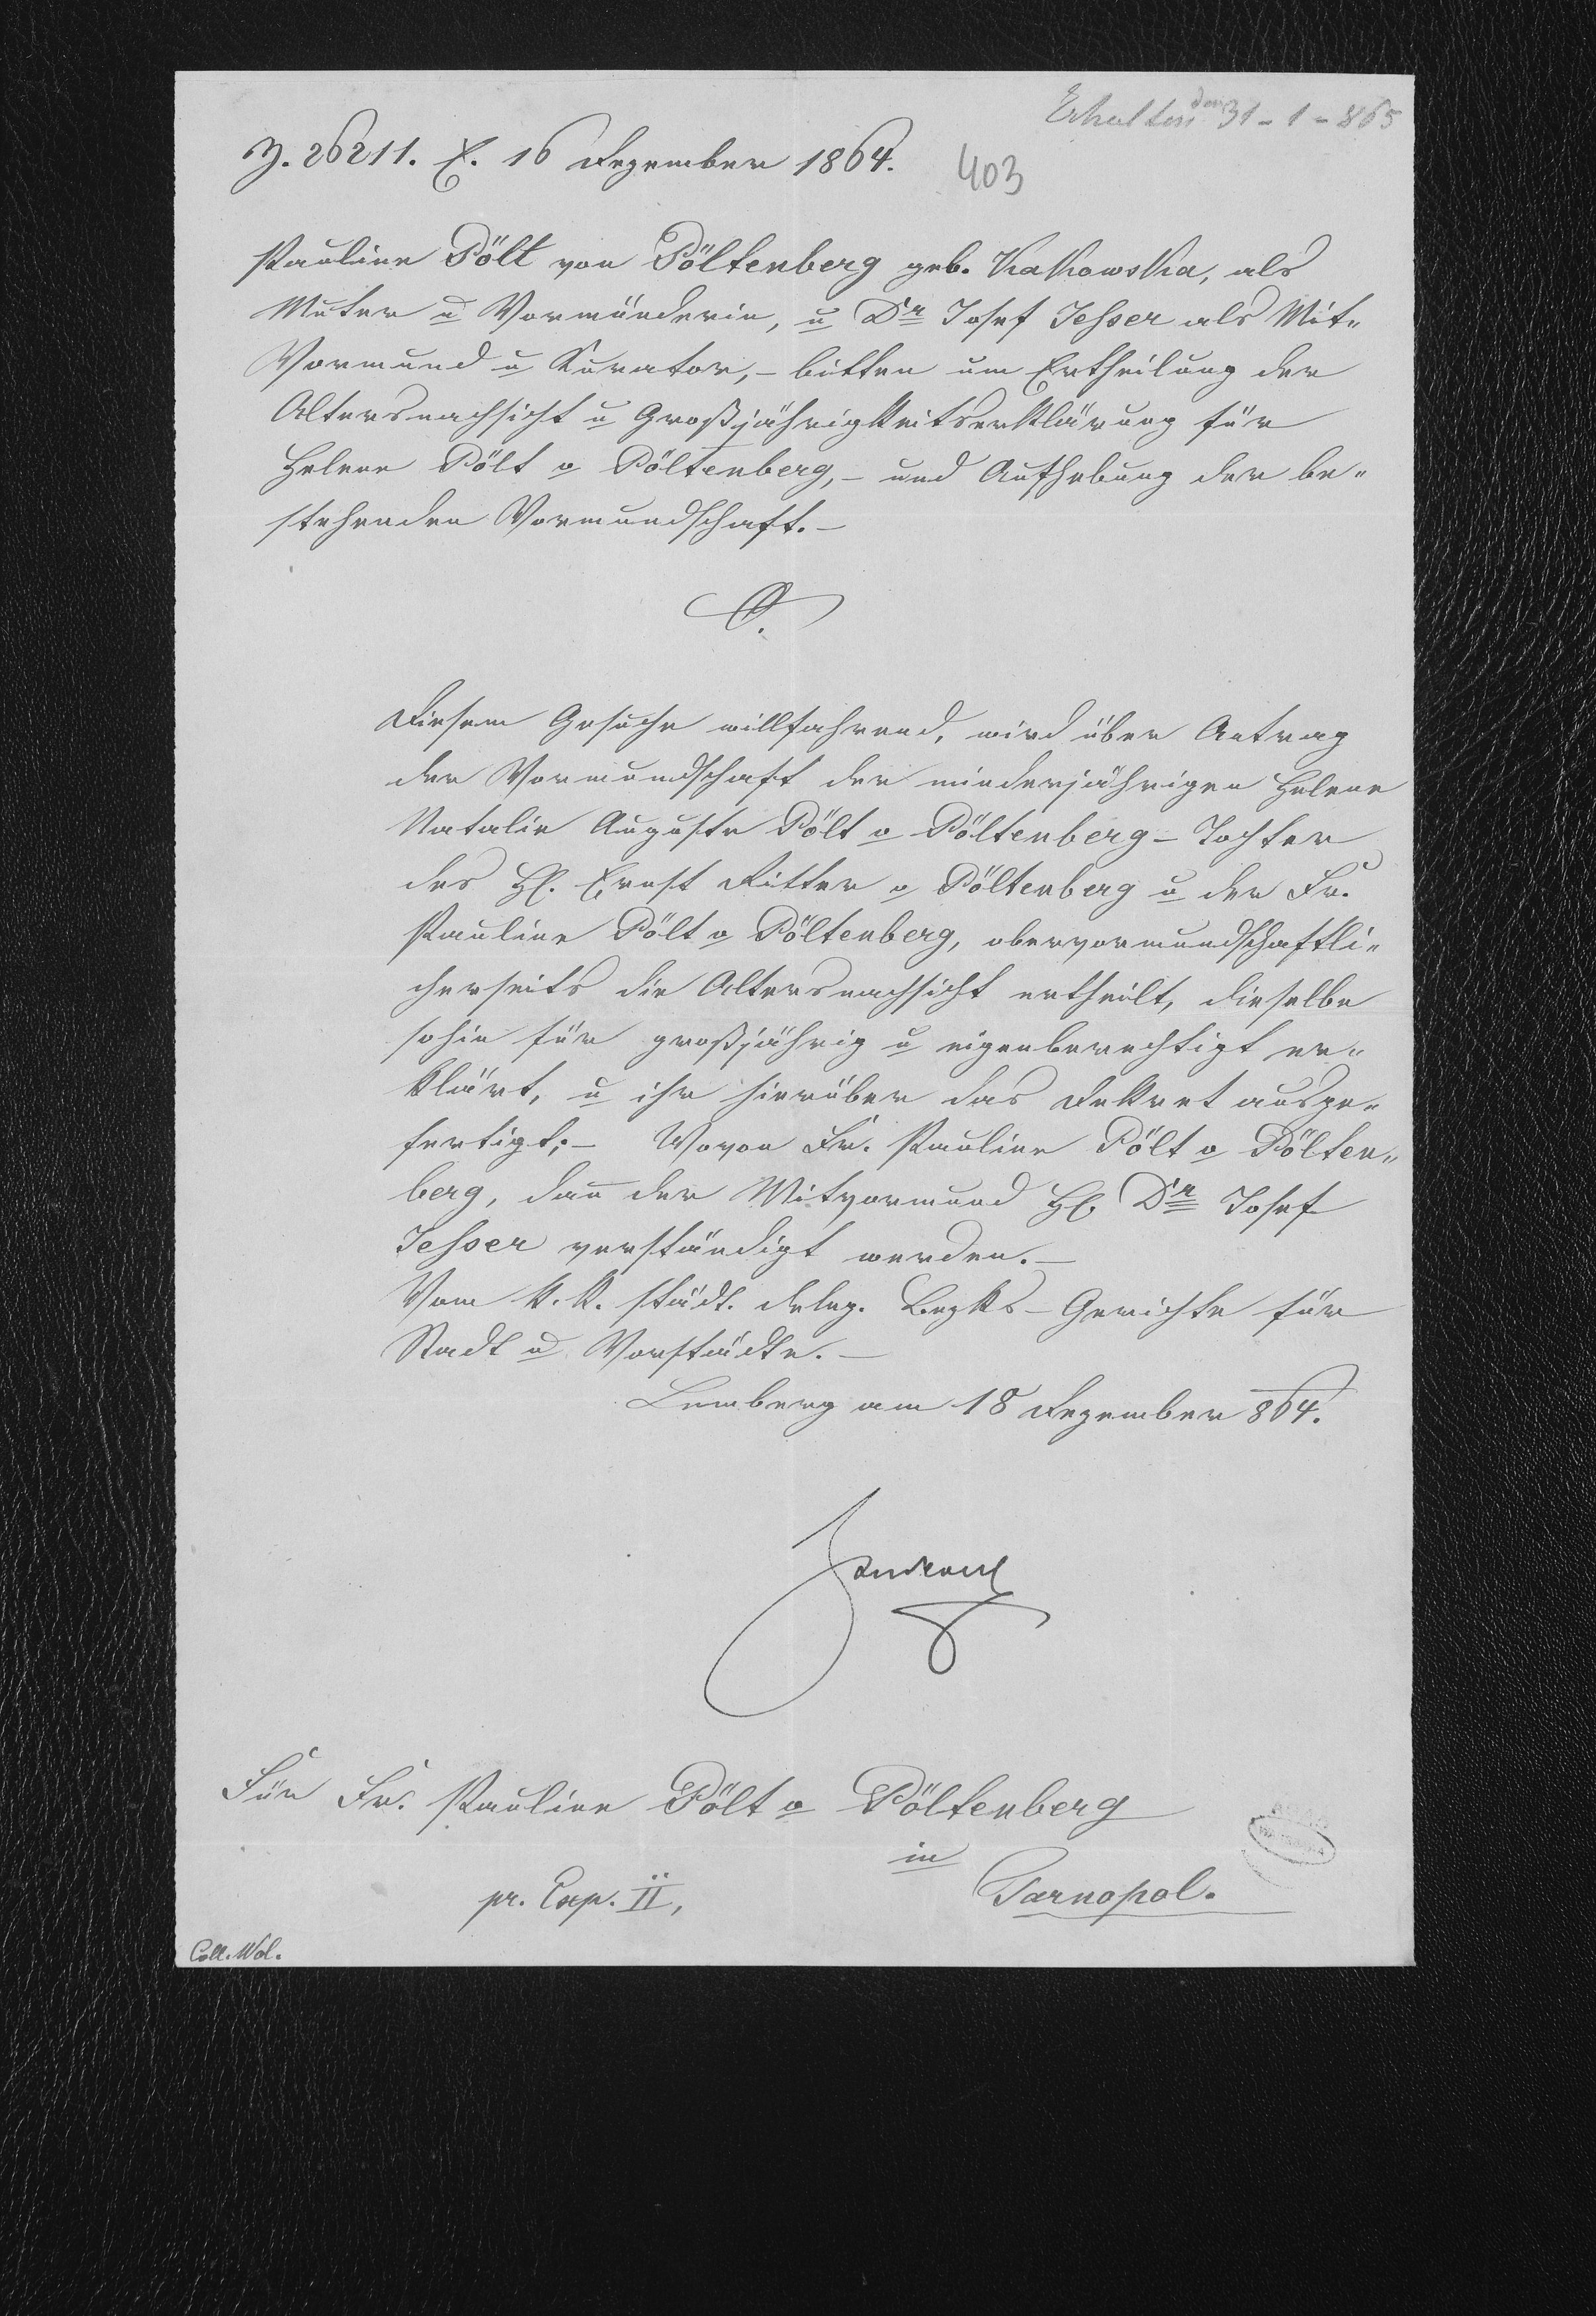 Erhalten den 31-1-865
Z. 26211. E. 16 Dezember 1864.
403
Pauline Pölt von Pöltenberg geb. Kakowska, als
Muter u Vormünderin, u Dr Josef Jesser als Mit-
Vormund u Kurator,- bitten um Ertheilung der
Altersnachsicht u Großjährigkeitserklärung für
Helene Pölt v Pöltenberg,- und Aufhebung der be-
stehenden Vormundschaft.-
Diesem Gesuche willfahrend, wird über Antrag
der Vormundschaft der minderjährigen Helene
Natalie Auguste Pölt v Pöltenberg - Tochter
des H. Ernst Ritter v Pöltenberg u der Fr.
Pauline Pölt v Pöltenberg, obervormundschaftli-
cherseits die Altersnachsicht ertheilt, dieselbe
sohin für großjährig u eigenberechtigt er-
klärt, u ihr hierüber das Dekret ausge-
fertigt;- Wovon Fr. Pauline Pölt v Pölten-
berg, dann der Mitvormund H Dr Josef
Jesser verständigt werden.-
Vom k.k. städt. deleg. Bezks-Gerichte für
Stadt u Vorstädte.-
Lemberg am 18 Dezember 864.
Für Fr. Pauline Pölt v Pöltenberg
in
pr. Exp. II,
Tarnopol.
Coll. Wol.